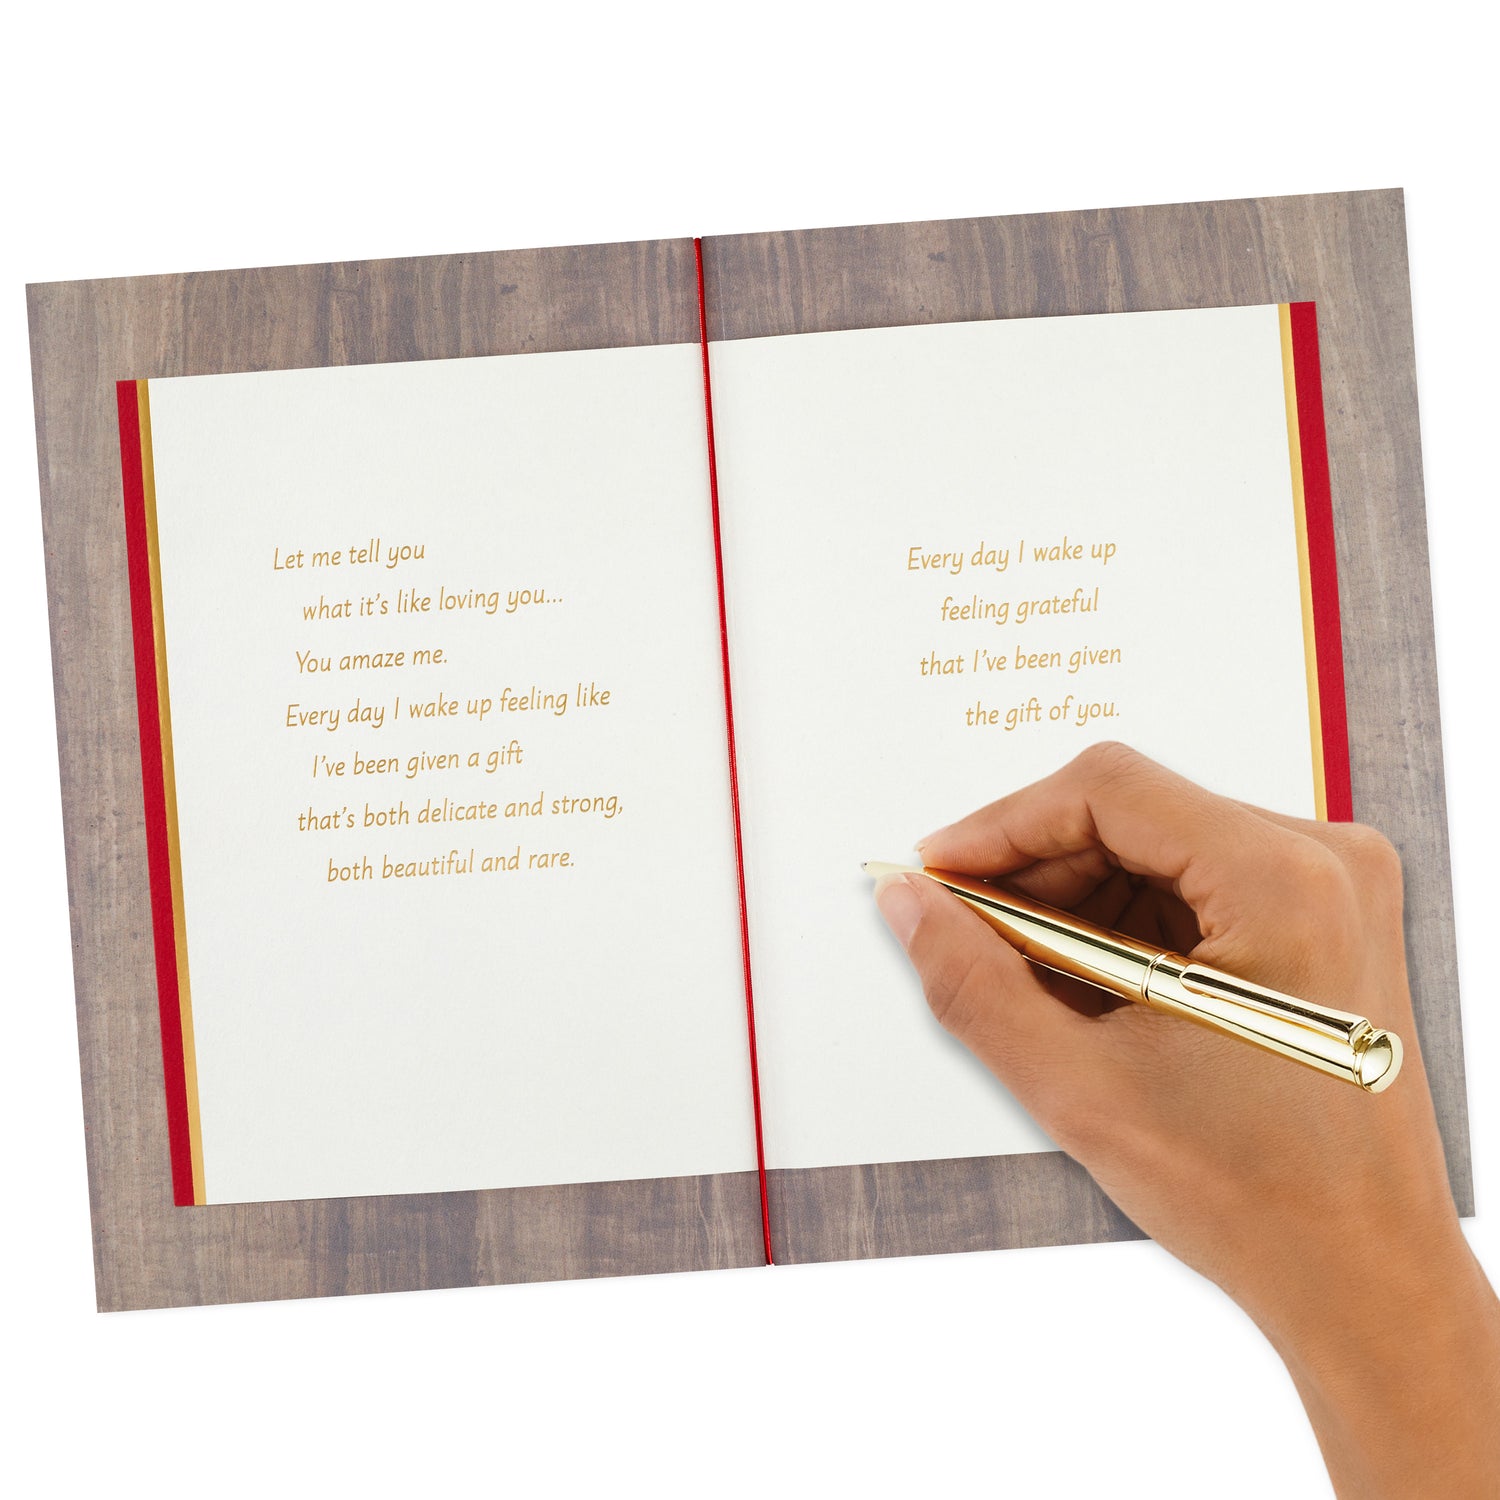 Let me tell you
what it's like loving you...
You amaze me.
Every day I wake up feeling like
I've been given a gift
that's both delicate and strong,
both beautiful and rare.
Every day I wake up
feeling grateful
that I've been given
the gift of you.